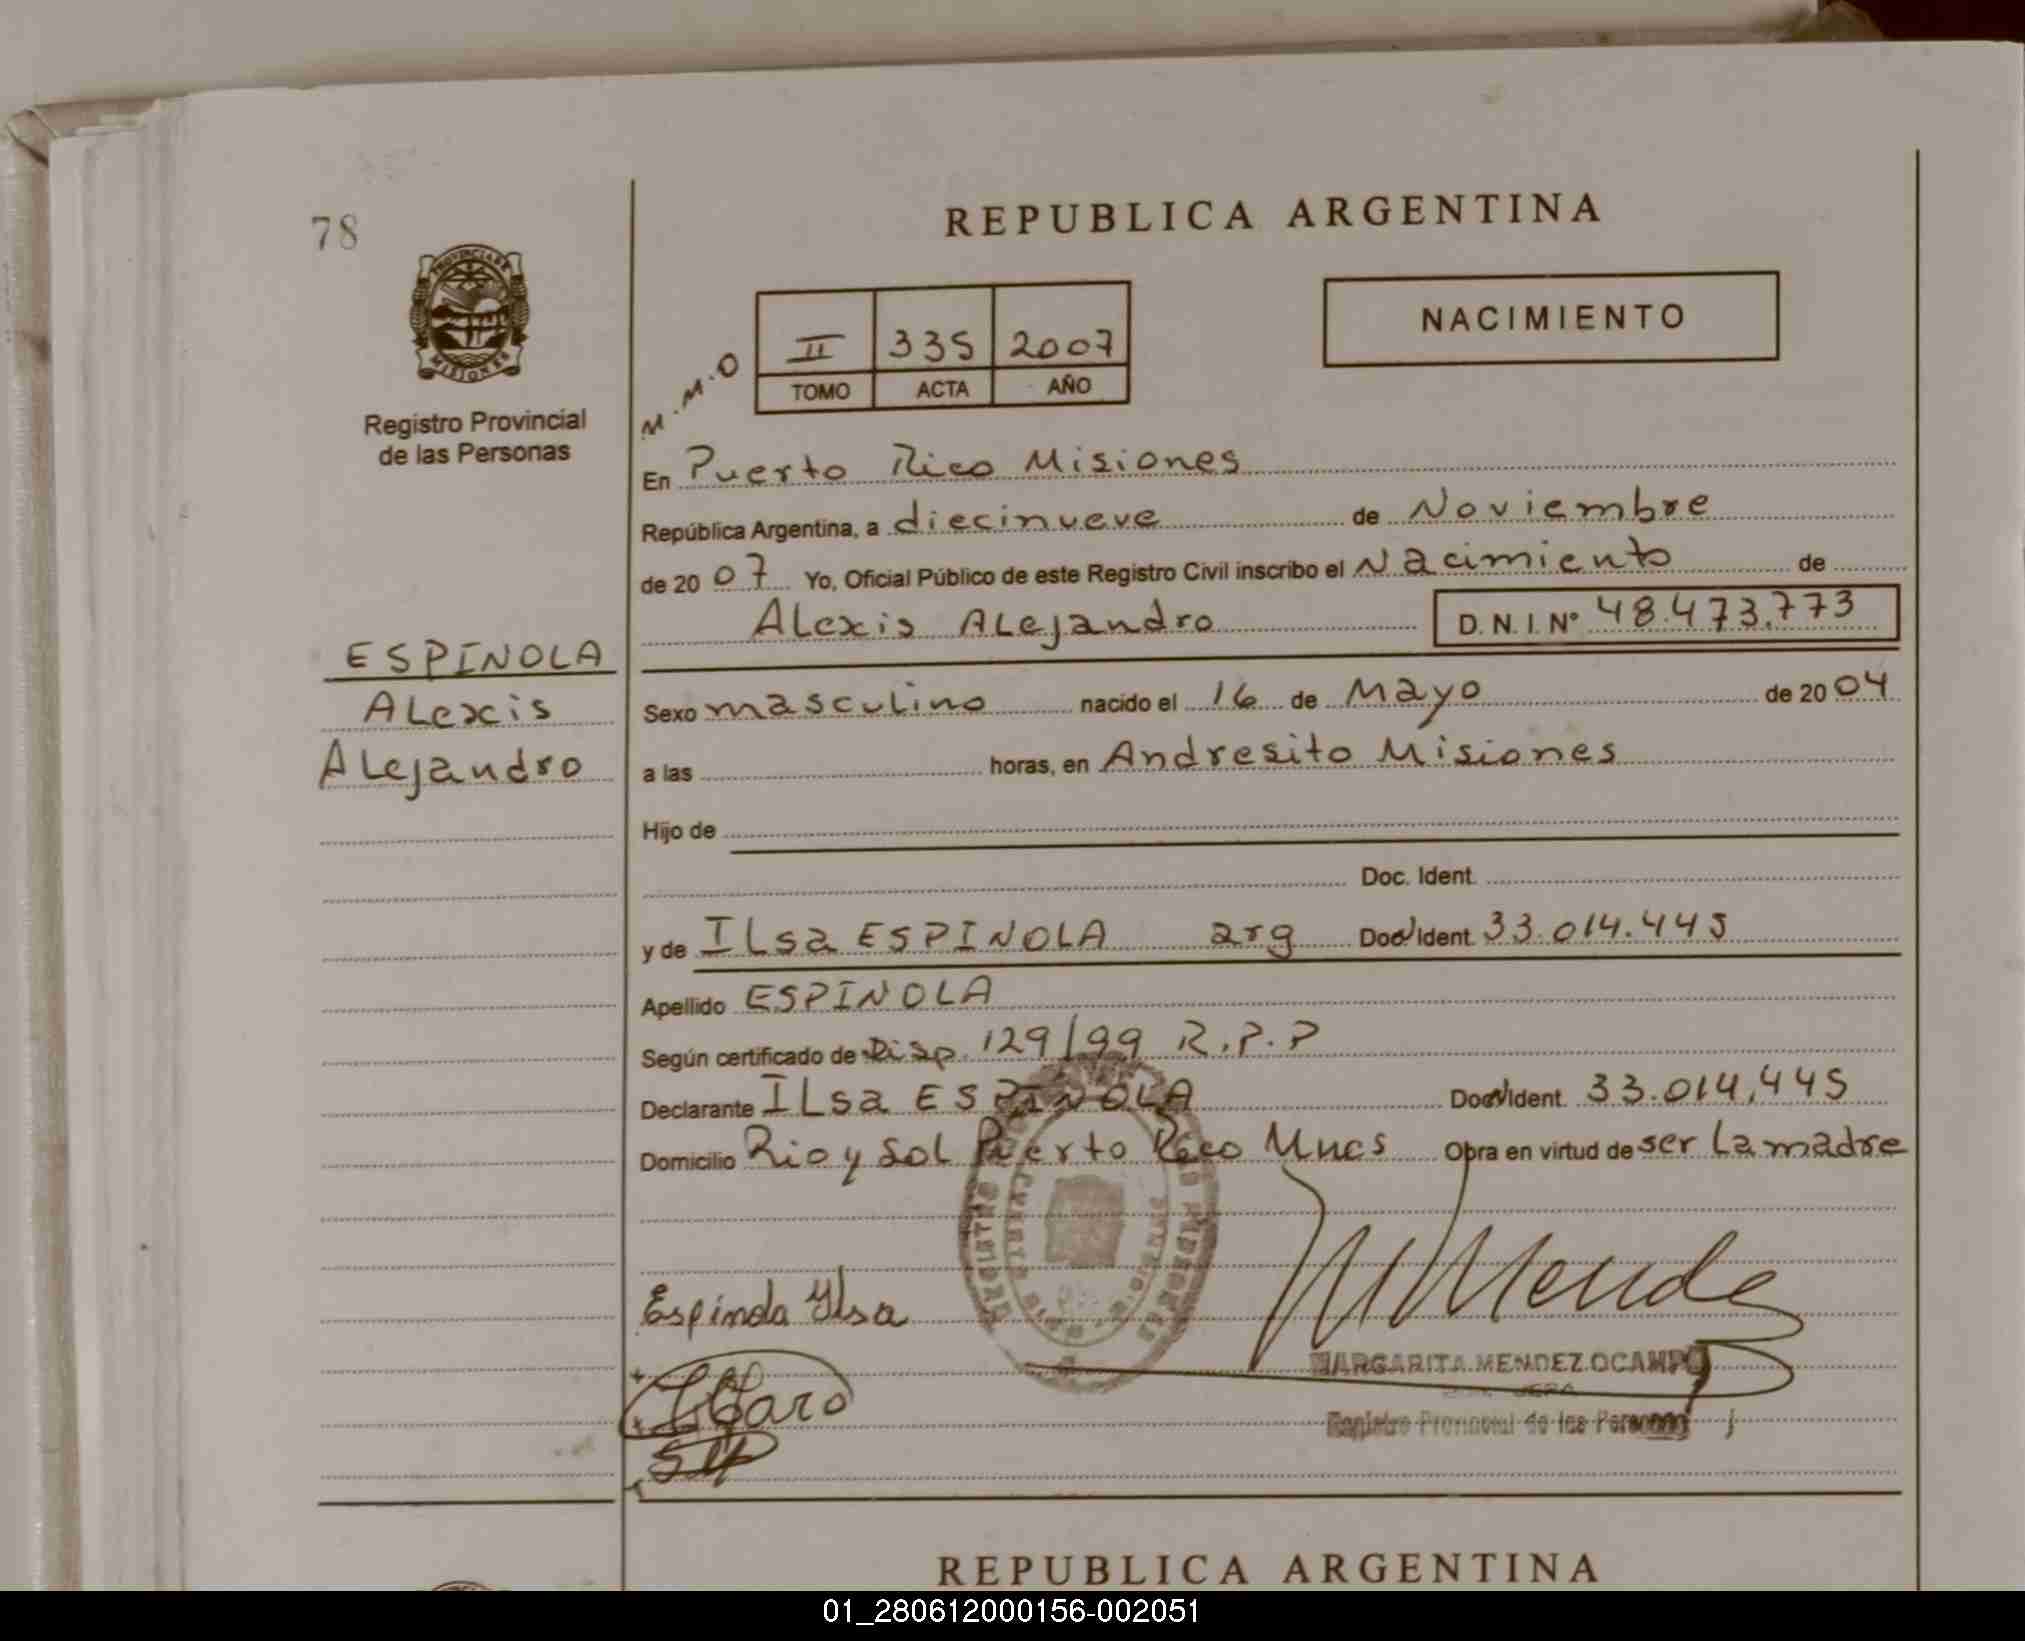 78
REPUBLICA ARGENTINA
PROVINCIA DE
MISIONES
Registro Provincial
de las Personas
NACIMIENTO
M.M.O
II 335 2007
TOMO ACTA AÑO
En Puerto Rico Misiones
República Argentina, a diecinueve de Noviembre
de 20 07 Yo, Oficial Público de este Registro Civil inscribo el Nacimiento de
Alexis Alejandro D.N.I. Nº 48.473.773
ESPINOLA
Alexis
Alejandro
Sexo masculino nacido el 16 de Mayo de 20 04
a las horas, en Andresito Misiones
Hijo de
Doc. Ident.
y de ILsa ESPINOLA arg Doc Ident. 33.014.445
Apellido ESPINOLA
Según certificado de Disp. 129/99 R.P.P
Declarante ILsa ESPINOLA Doc Ident. 33.014.445
Domicilio Rio y Sol Puerto Rico Mnes Obra en virtud de ser La madre
Espinola Ilsa
MARGARITA MENDEZ OCAMPO
JEFA
Registro Provincial de las Personas
REPUBLICA ARGENTINA
01_280612000156-002051